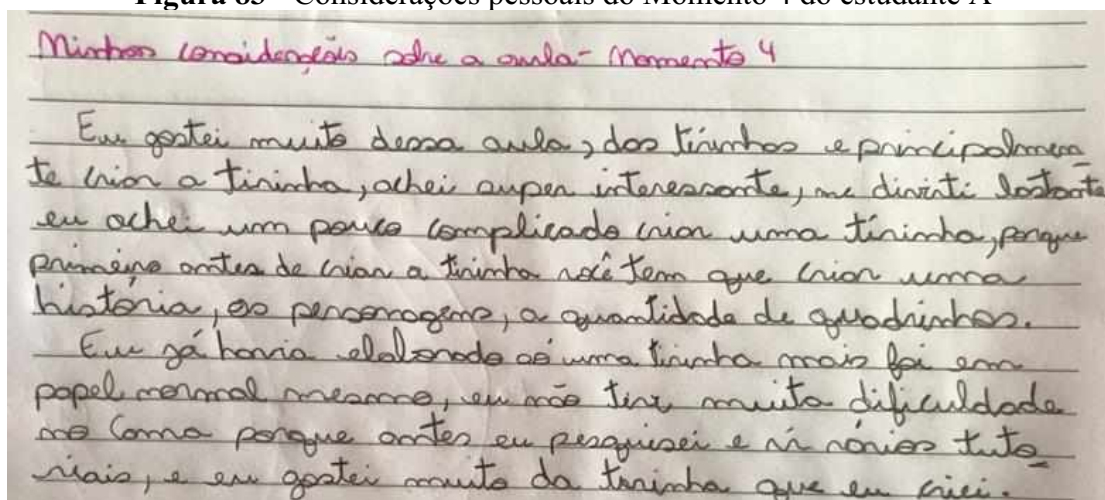 Figura 83 - Considerações pessoais do Momento 4 do estudante A
Minhas considerações sobre a aula - Momento 4
Eu gostei muito dessa aula, das tirinhas e principalmen
te criar a tirinha, achei super interessante, me diverti bastante
eu achei um pouco complicado criar uma tirinha, porque
primeiro antes de criar a tirinha você tem que criar uma
história, os personagens, a quantidade de quadrinhos.
Eu já havia elaborado só uma tirinha mais foi em
papel normal mesmo, eu não tive muita dificuldade
no Canva porque antes eu pesquisei e vi vários tuto
riais, e eu gostei muito da tirinha que eu criei.